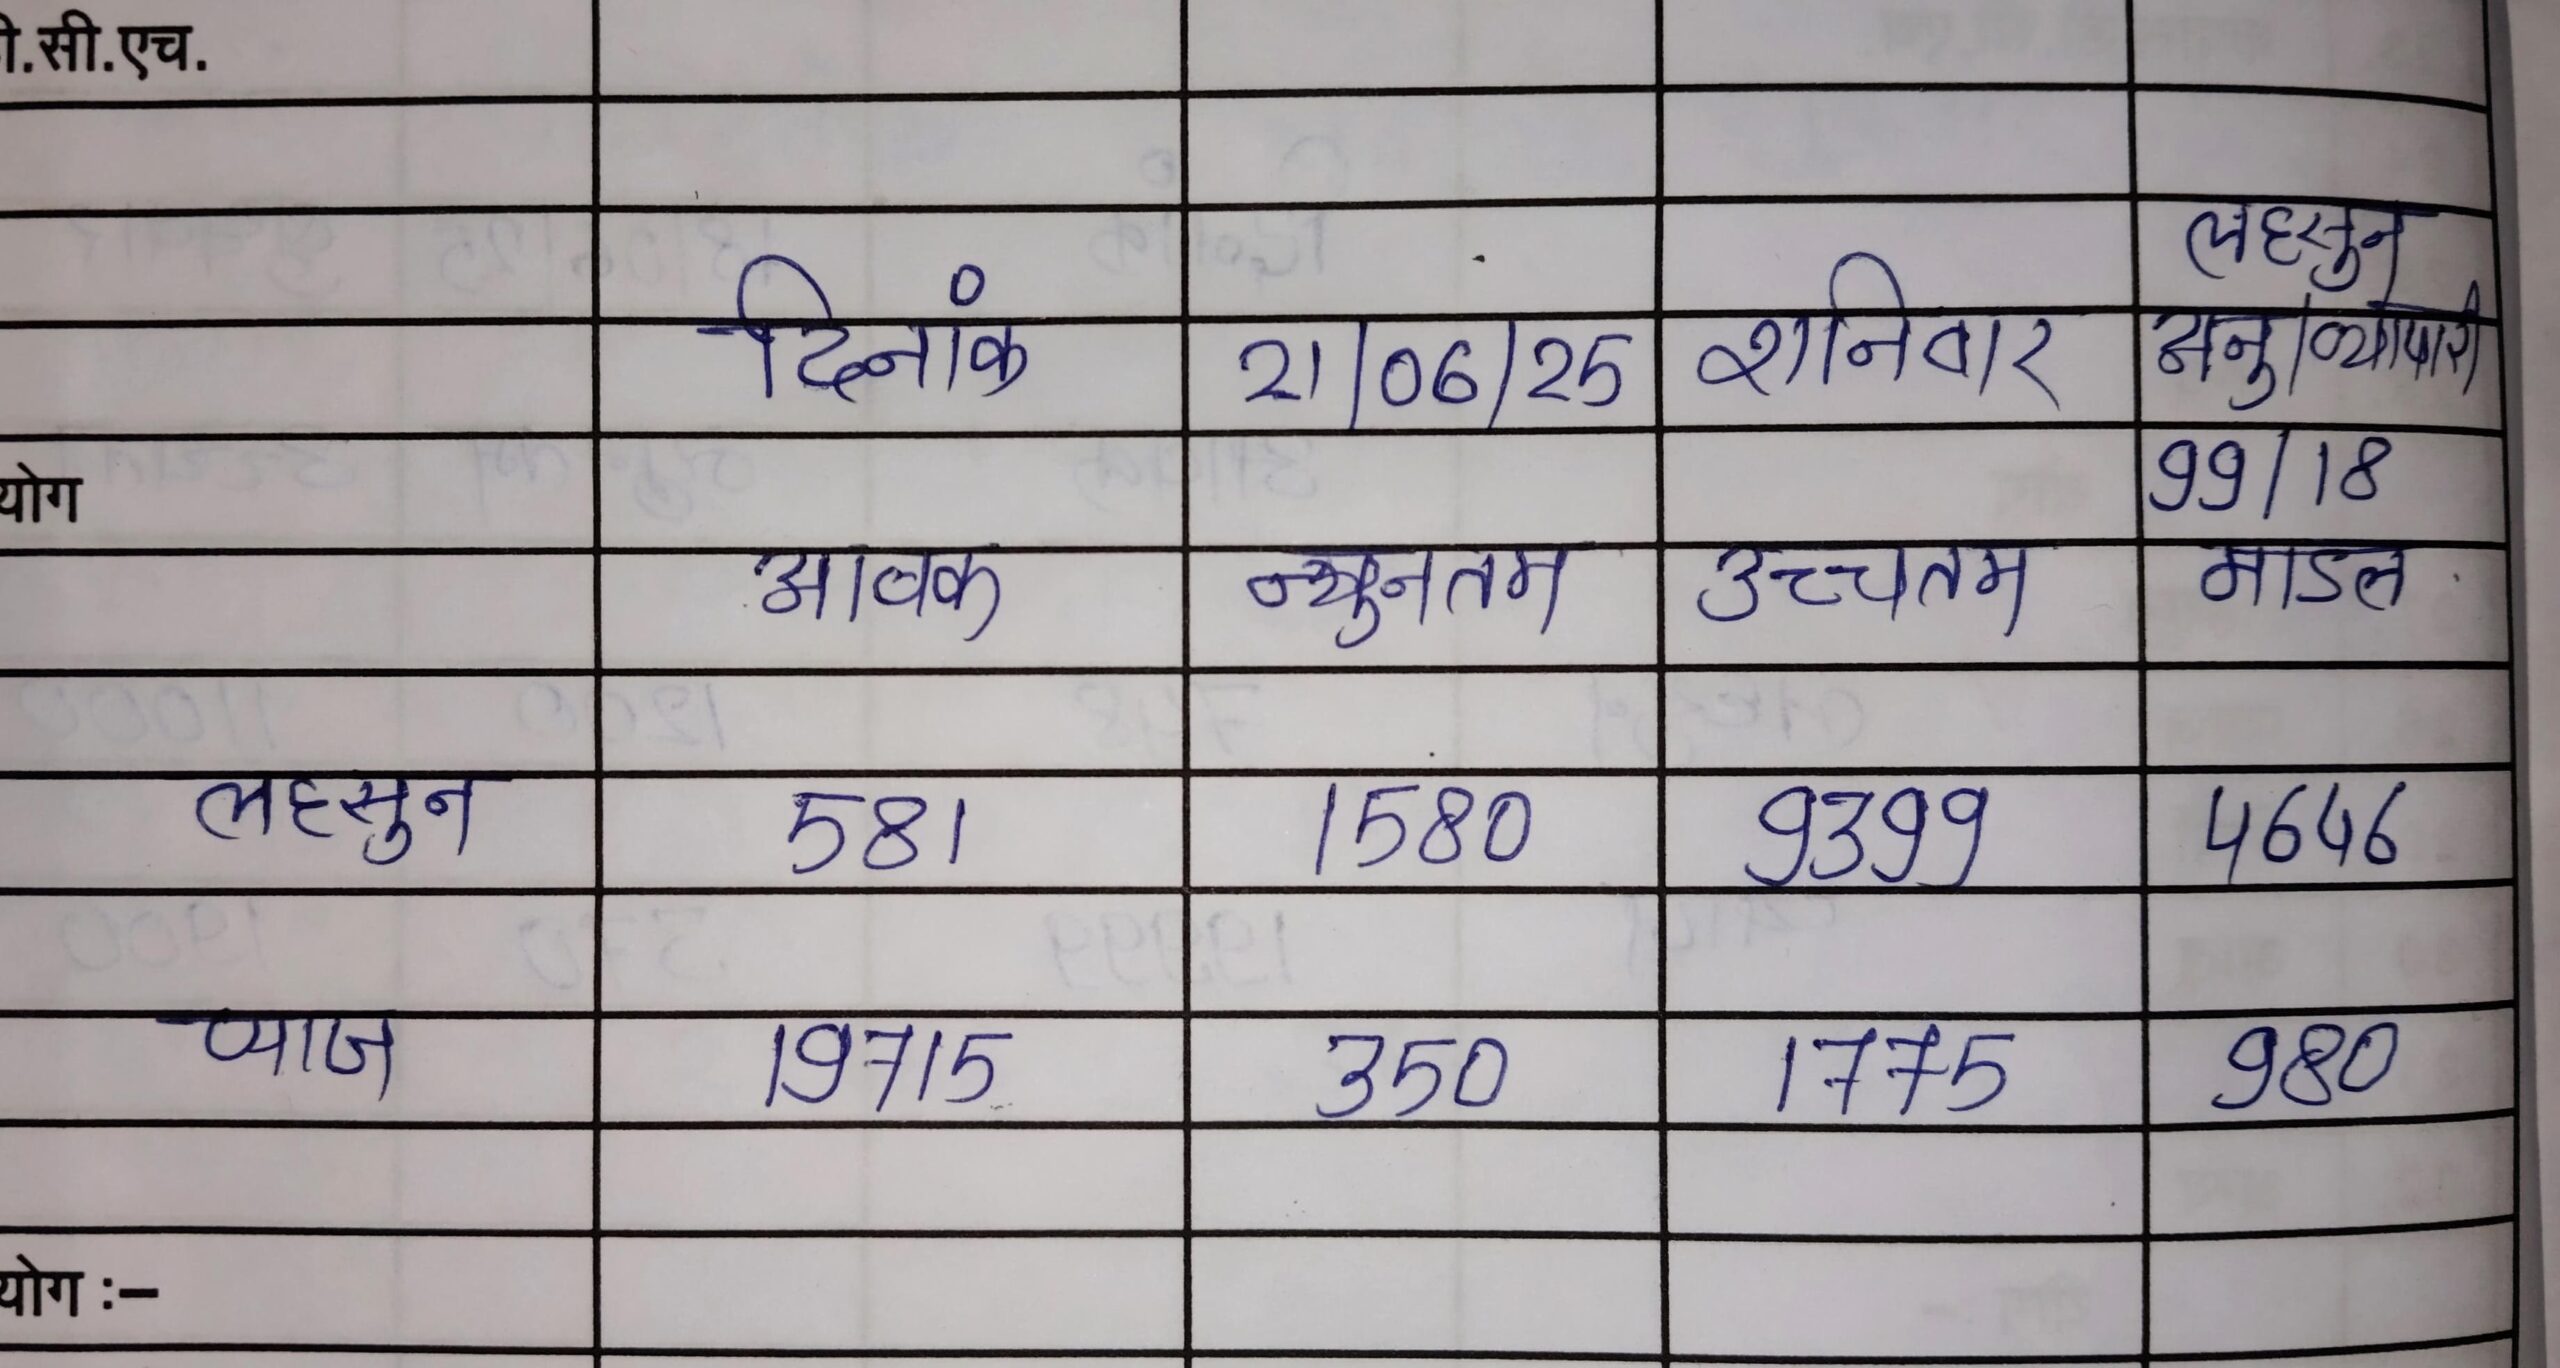 ी.सी.एच.
लहसुन
दिनांक 21/06/25 शनिवार अनु/व्यापारी
योग 99/18
आवक न्युनतम उच्चतम माडल
लहसुन 581 1580 9399 4646
प्याज 19715 350 1775 980
योग :–